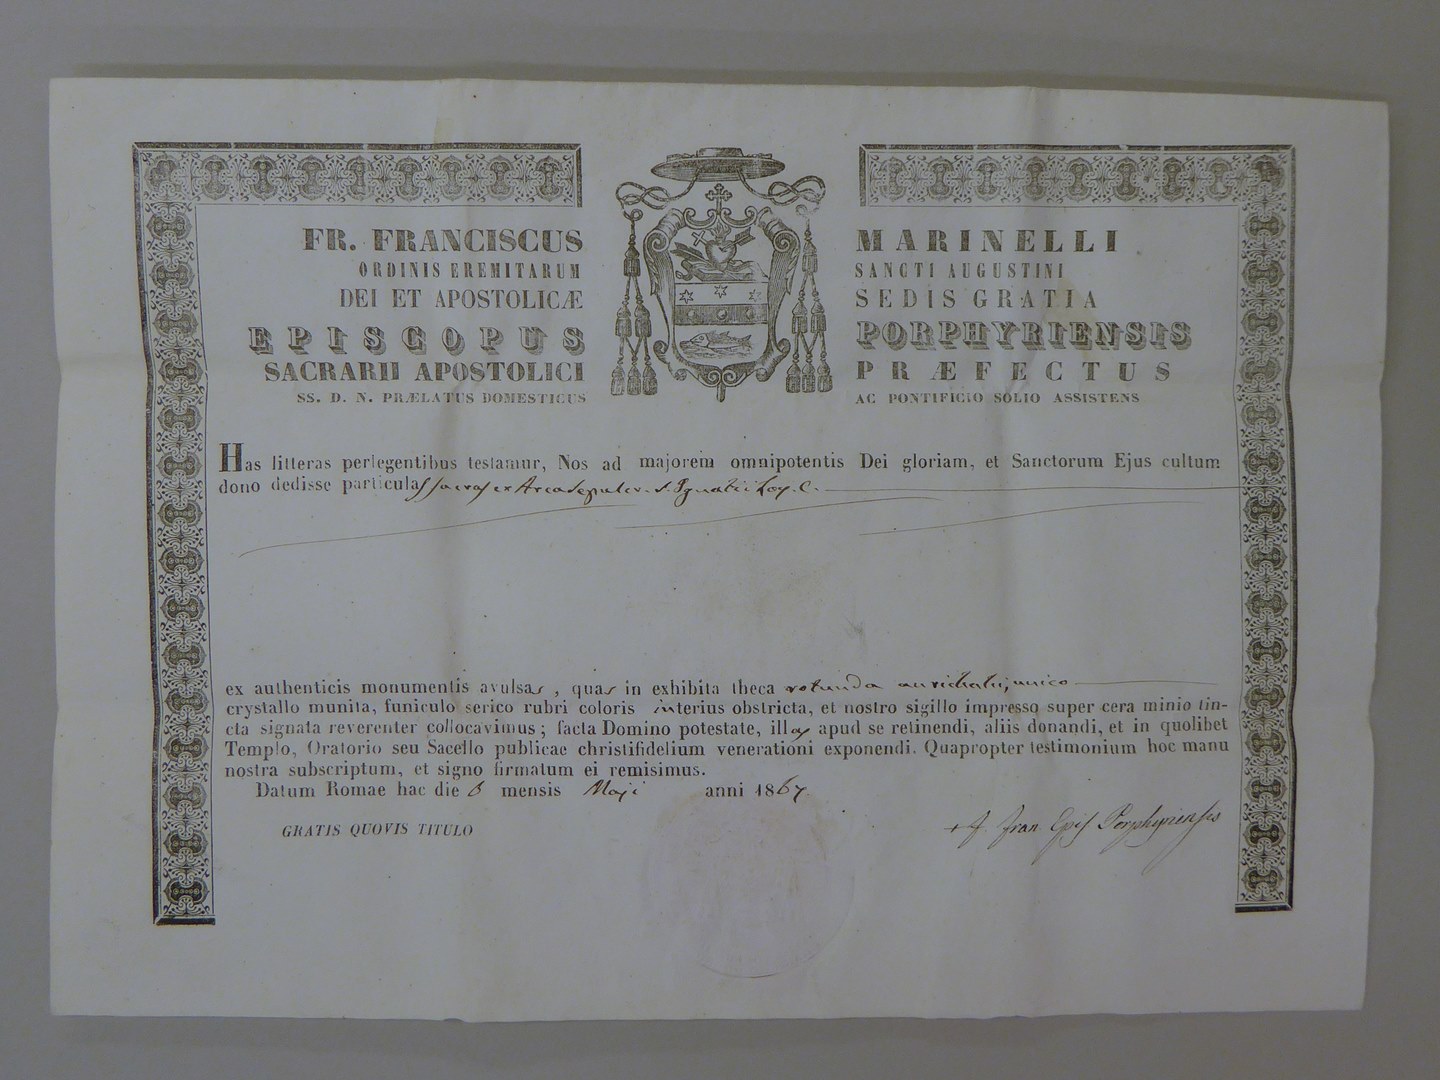 FR. FRANCISCUS MARINELLI
ORDINIS EREMITARUM SANCTI AUGUSTINI
DEI ET APOSTOLICÆ SEDIS GRATIA
EPISCOPUS PORPHYRIENSIS
SACRARII APOSTOLICI PRÆFECTUS
SS. D. N. PRÆLATUS DOMESTICUS AC PONTIFICIO SOLIO ASSISTENS
Has litteras perlegentibus testamur, Nos ad majorem omnipotentis Dei gloriam, et Sanctorum Ejus cultum
dono dedisse particulas sacras ex Arca Sepulcr. S. Ignatii Loy. C.
ex authenticis monumentis avulsas, quas in exhibita theca rotunda aurichalci, unico
crystallo munita, funiculo serico rubri coloris interius obstricta, et nostro sigillo impresso super cera minio tin-
cta signata reverenter collocavimus; facta Domino potestate, illas apud se retinendi, aliis donandi, et in quolibet
Templo, Oratorio seu Sacello publicae christifidelium venerationi exponendi. Quapropter testimonium hoc manu
nostra subscriptum, et signo firmatum ei remisimus.
Datum Romae hac die 6 mensis Maji anni 1867
GRATIS QUOVIS TITULO
+ F. Fran. Epis Porphyriensis